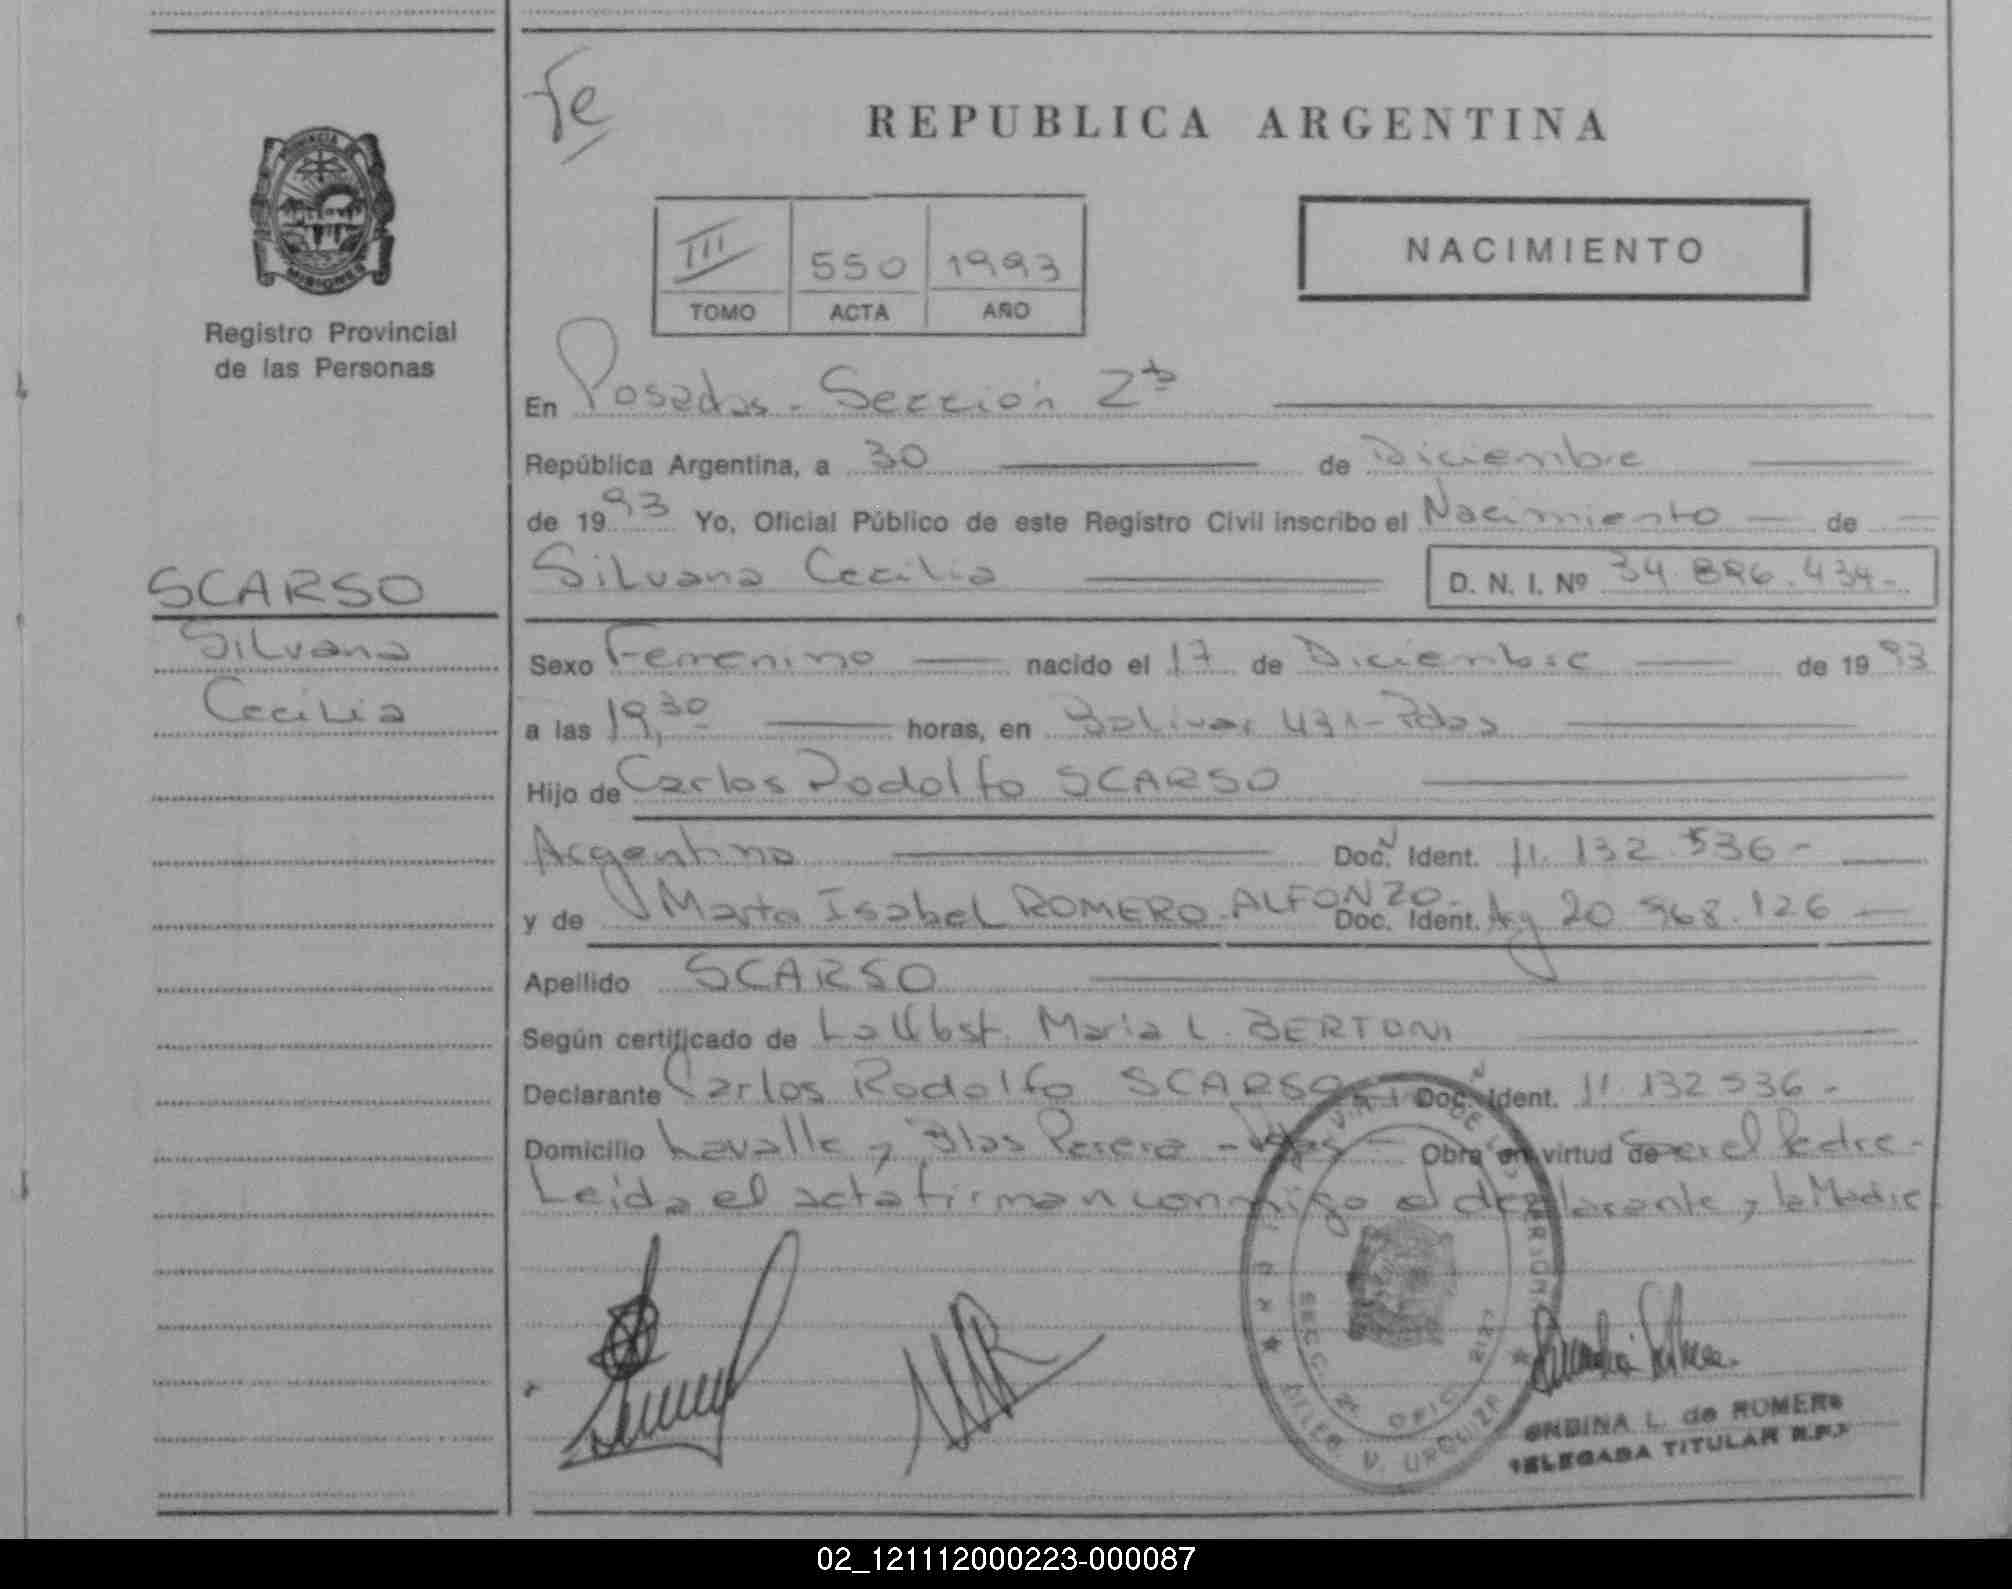 Fe
REPUBLICA ARGENTINA
PROVINCIA
MISIONES
Registro Provincial
de las Personas
III 550 1993
TOMO ACTA AÑO
NACIMIENTO
En Posadas - Sección 2ª
República Argentina, a 30 de Diciembre
de 1993 Yo, Oficial Público de este Registro Civil inscribo el Nacimiento de
SCARSO
Silvana
Cecilia
Silvana Cecilia D. N. I. Nº 34.896.434.-
Sexo Femenino nacido el 17 de Diciembre de 1993
a las 19,30 horas, en Bolivar 431 - Pdas
Hijo de Carlos Rodolfo SCARSO
Argentino Doc. Ident. 11.132.536-
y de Marta Isabel ROMERO ALFONZO.- Doc. Ident. Arg 20.968.126
Apellido SCARSO
Según certificado de La Obst. Maria L. BERTONI
Declarante Carlos Rodolfo SCARSO Doc. Ident. 11.132.536-
Domicilio Lavalle y Blas Parera - Pdas - Obra en virtud de Ser el Padre-
Leida el acta firman conmigo el declarante y la Madre
SECC. 2ª OFIC.
DELEG. V. URQUIZA
ONDINA L. de ROMERO
DELEGADA TITULAR R.P.P
02_121112000223-000087